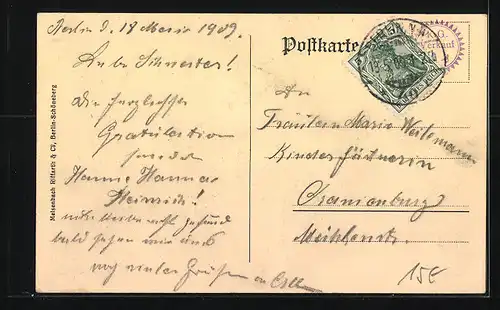 Berlin d. 18 März 1909.
Liebe Schwester!
Die herzlichste
Gratulation
sendet
Hanne Hanna
Heinrich!
bald sehen wir uns
noch vielen Grüßen an Alle
Meisenbach Riffarth & Co, Berlin-Schöneberg
Postkarte
BERLIN N.W.
G.
Verkauf
An
Fräulein Marie Weitemann
Kindergärtnerin
Oranienburg
Mühlenstr.
15E